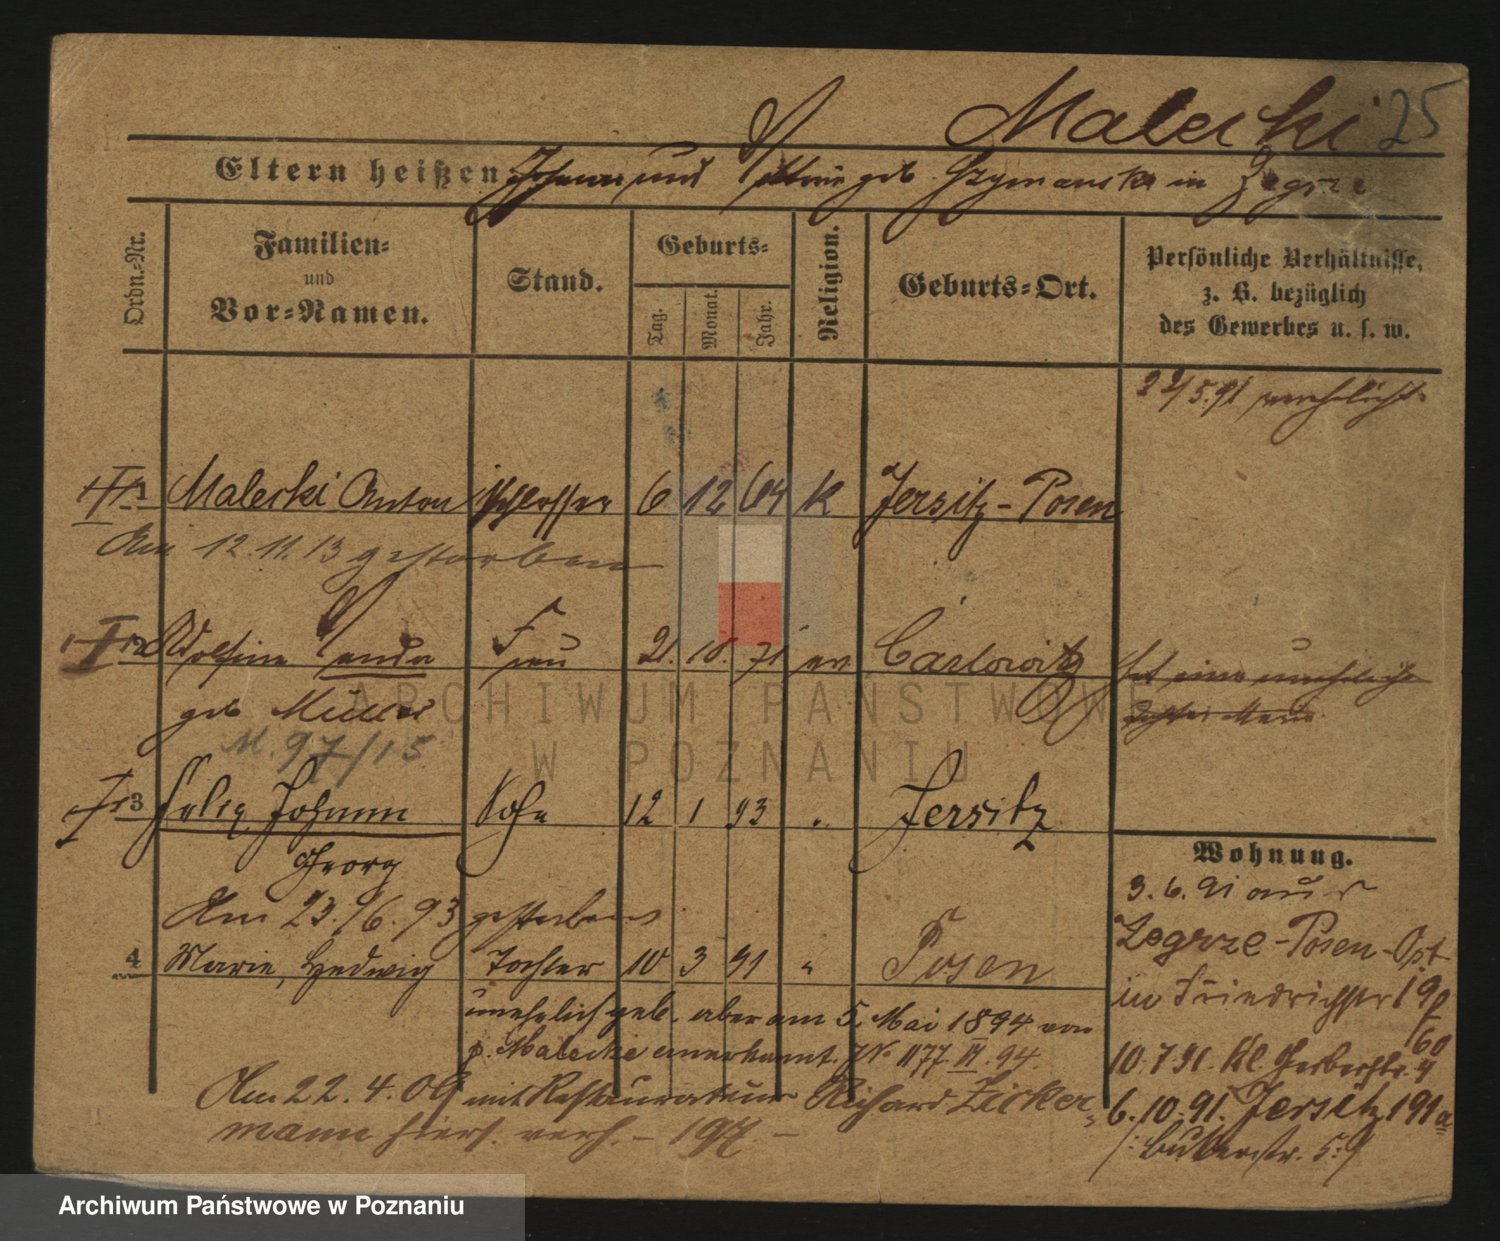 Malecki 25
Eltern heißen: Johann und geb. Szymanska in Zegrze
Ordn.-Nr.
Familien-
und
Vor-Namen.
Stand.
Geburts-
Tag.
Monat.
Jahr.
Religion.
Geburts-Ort.
Persönliche Verhältnisse,
z. B. bezüglich
des Gewerbes u. s. w.
5.91 verehelicht
Malecki Anton Schlosser 6 12 64 k Jersitz-Posen
Am 12.11.13 gestorben
2 Adolfine Wanda Frau 21. 10. 71 ev. Carlowitz hat eine uneheliche
geb. Müller Tochter Marie
ARCHIWUM PAŃSTWOWE
M. 97/15
W POZNANIU
3 Felix Johann Sohn 12 1 93 " Jersitz
Georg
Am 23./6. 93 gestorben
4 Marie, Hedwig Tochter 10 3 91 " Posen
unehelich geb. aber am 5. Mai 1894 von
p. Malecki anerkannt. J No 1177 III. 94.
Am 22. 4. 09 mit Restaurateur Richard Zicker-
mann hiers. verh. –
Wohnung.
3. 6. 91 aus
Zegrze-Posen-Ost
in Friedrichstr 19
/60
10. 7. 91. Kl. Gerberstr. 4
6. 10. 91. Jersitz 191a
Archiwum Państwowe w Poznaniu